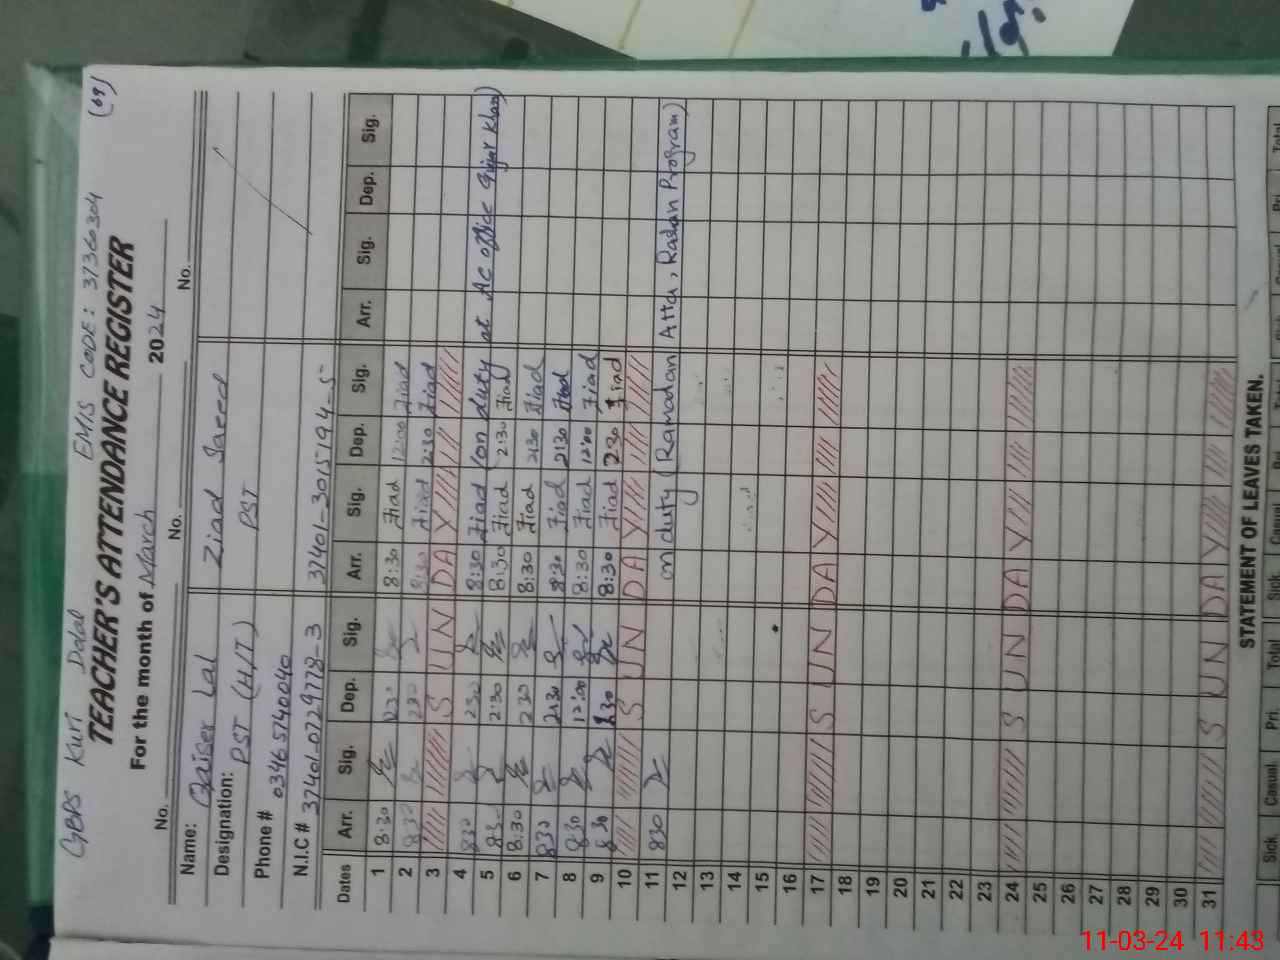 GBPS Kuri Dalal EMIS CODE: 37360304 (09)
TEACHER'S ATTENDANCE REGISTER
For the month of March 2024
No. No. No.
Name: Qaiser Lal Ziad Saeed
Designation: PST (H/T) PST
Phone # 03465740040
N.I.C # 37401-0729778-3 37401-3015194-5
Dates Arr. Sig. Dep. Sig. Arr. Sig. Dep. Sig. Arr. Sig. Dep. Sig.
1 8:30 230 8:30 Ziad 12:00 Ziad
2 830 230 8:30 Ziad 2:30 Ziad
3 SUN DAY
4 830 230 8:30 Ziad (on duty at AC office Gujar Khan)
5 830 2:30 8:30 Ziad 2:30 Ziad
6 8:30 230 8:30 Ziad 2:30 Ziad
7 830 2:30 8:30 Ziad 2:30 Ziad
8 830 12:00 8:30 Ziad 12:00 Ziad
9 8:30 2:30 8:30 Ziad 2:30 Ziad
10 SUN DAY
11 830 on duty (Ramadan Atta, Rashan Program)
12
13
14
15
16
17 SUN DAY
18
19
20
21
22
23
24 SUN DAY
25
26
27
28
29
30
31 SUN DAY
STATEMENT OF LEAVES TAKEN.
Sick Casual Pri. Total Sick
11-03-24 11:43